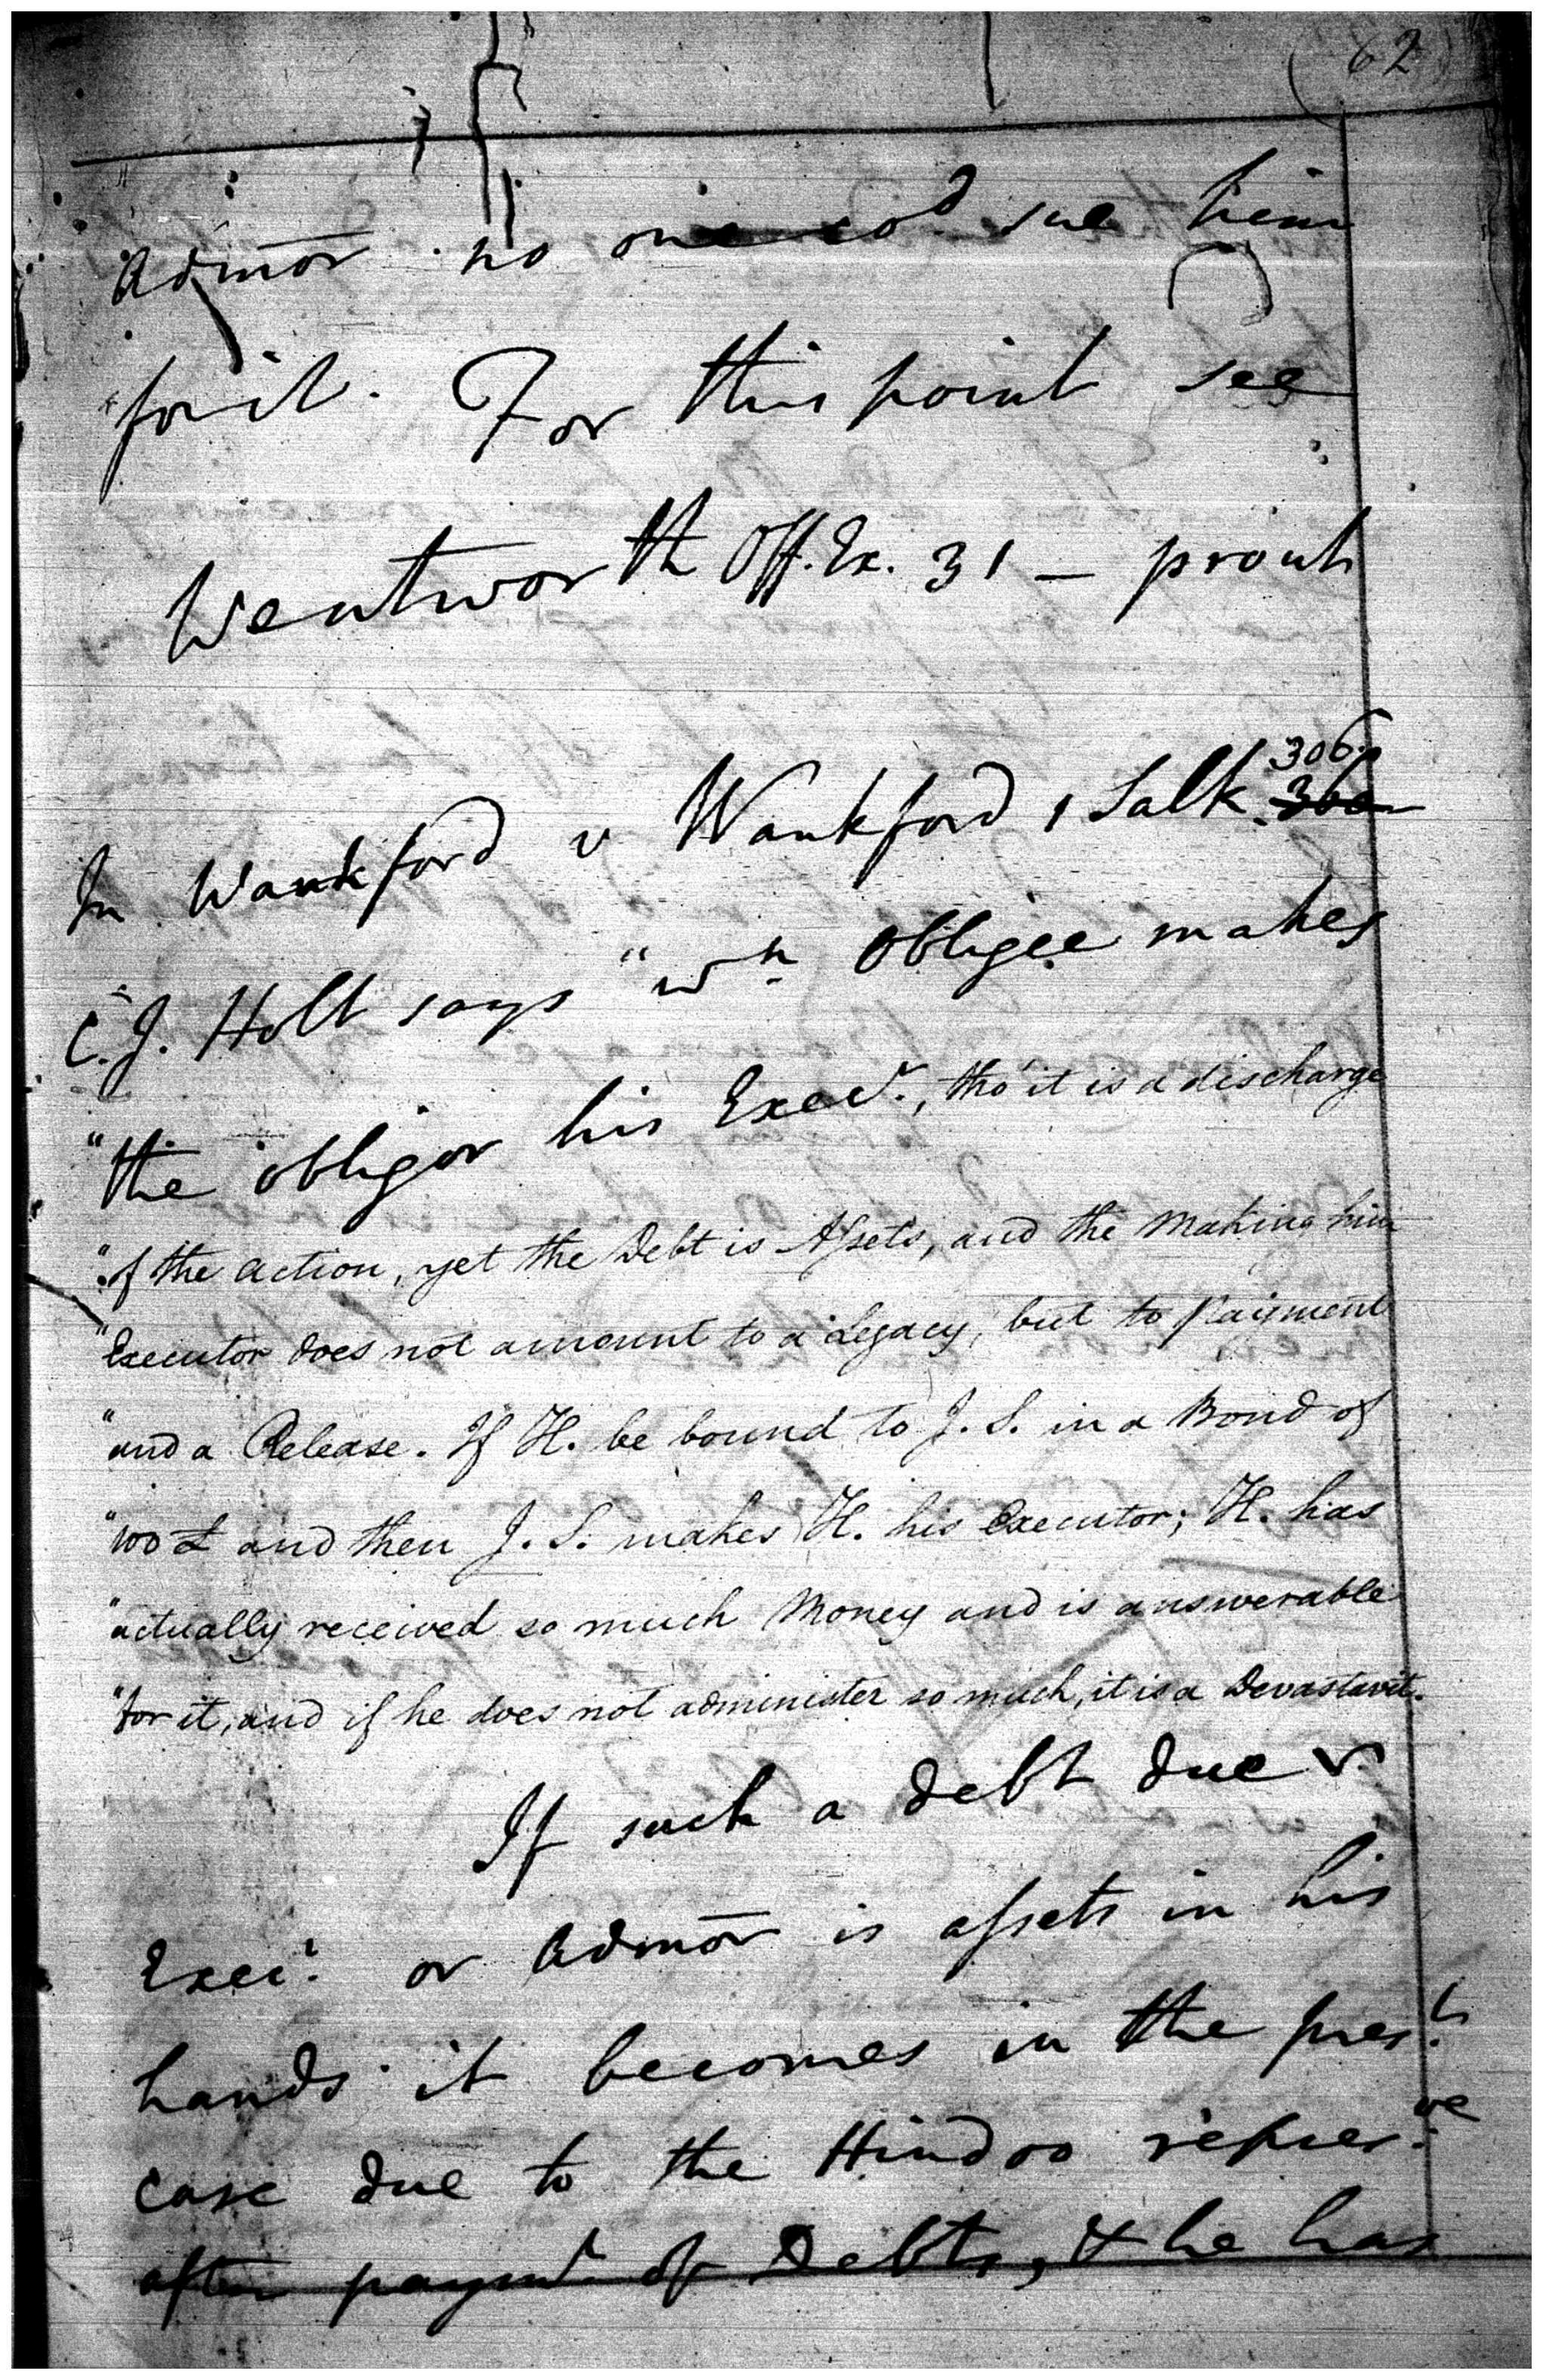 62
Admor no one cod. sue him
for it. For this point see
Wentworth Off. Ex. 31 — prout
In Wankford v Wankford 1 Salk. 306.
C. J. Holt says "wn. Obligee makes
"the obligor his Execr., tho' it is a discharge
"of the action, yet the Debt is Assets, and the making him
"Executor does not amount to a Legacy, but to Paiment
"and a Release. If H. be bound to J. S. in a Bond of
"100 £ and then J. S. makes H. his Executor; H. has
"actually received so much Money and is answerable
"for it, and if he does not administer so much, it is a Devastavit.
If such a debt due
Execr. or Admor is assets in his
hands it becomes in the prest.
case due to the Hindoo represve.
after paymt. of Debts, & he has